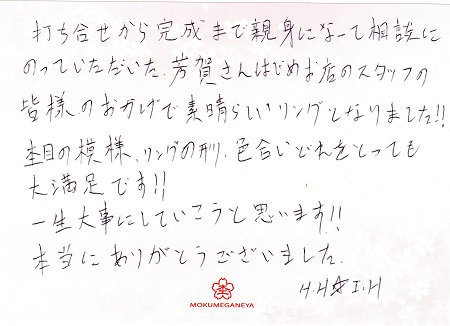 打ち合せから完成まで親身になって相談に
のっていただいた、芳賀さんはじめお店のスタッフの
皆様のおかげで素晴らしいリングとなりました!!
杢目の模様、リングの形、色合いどれをとっても
大満足です!!
一生大事にしていこうと思います!!
本当にありがとうございました。
H.H☆I.H
MOKUMEGANEYA